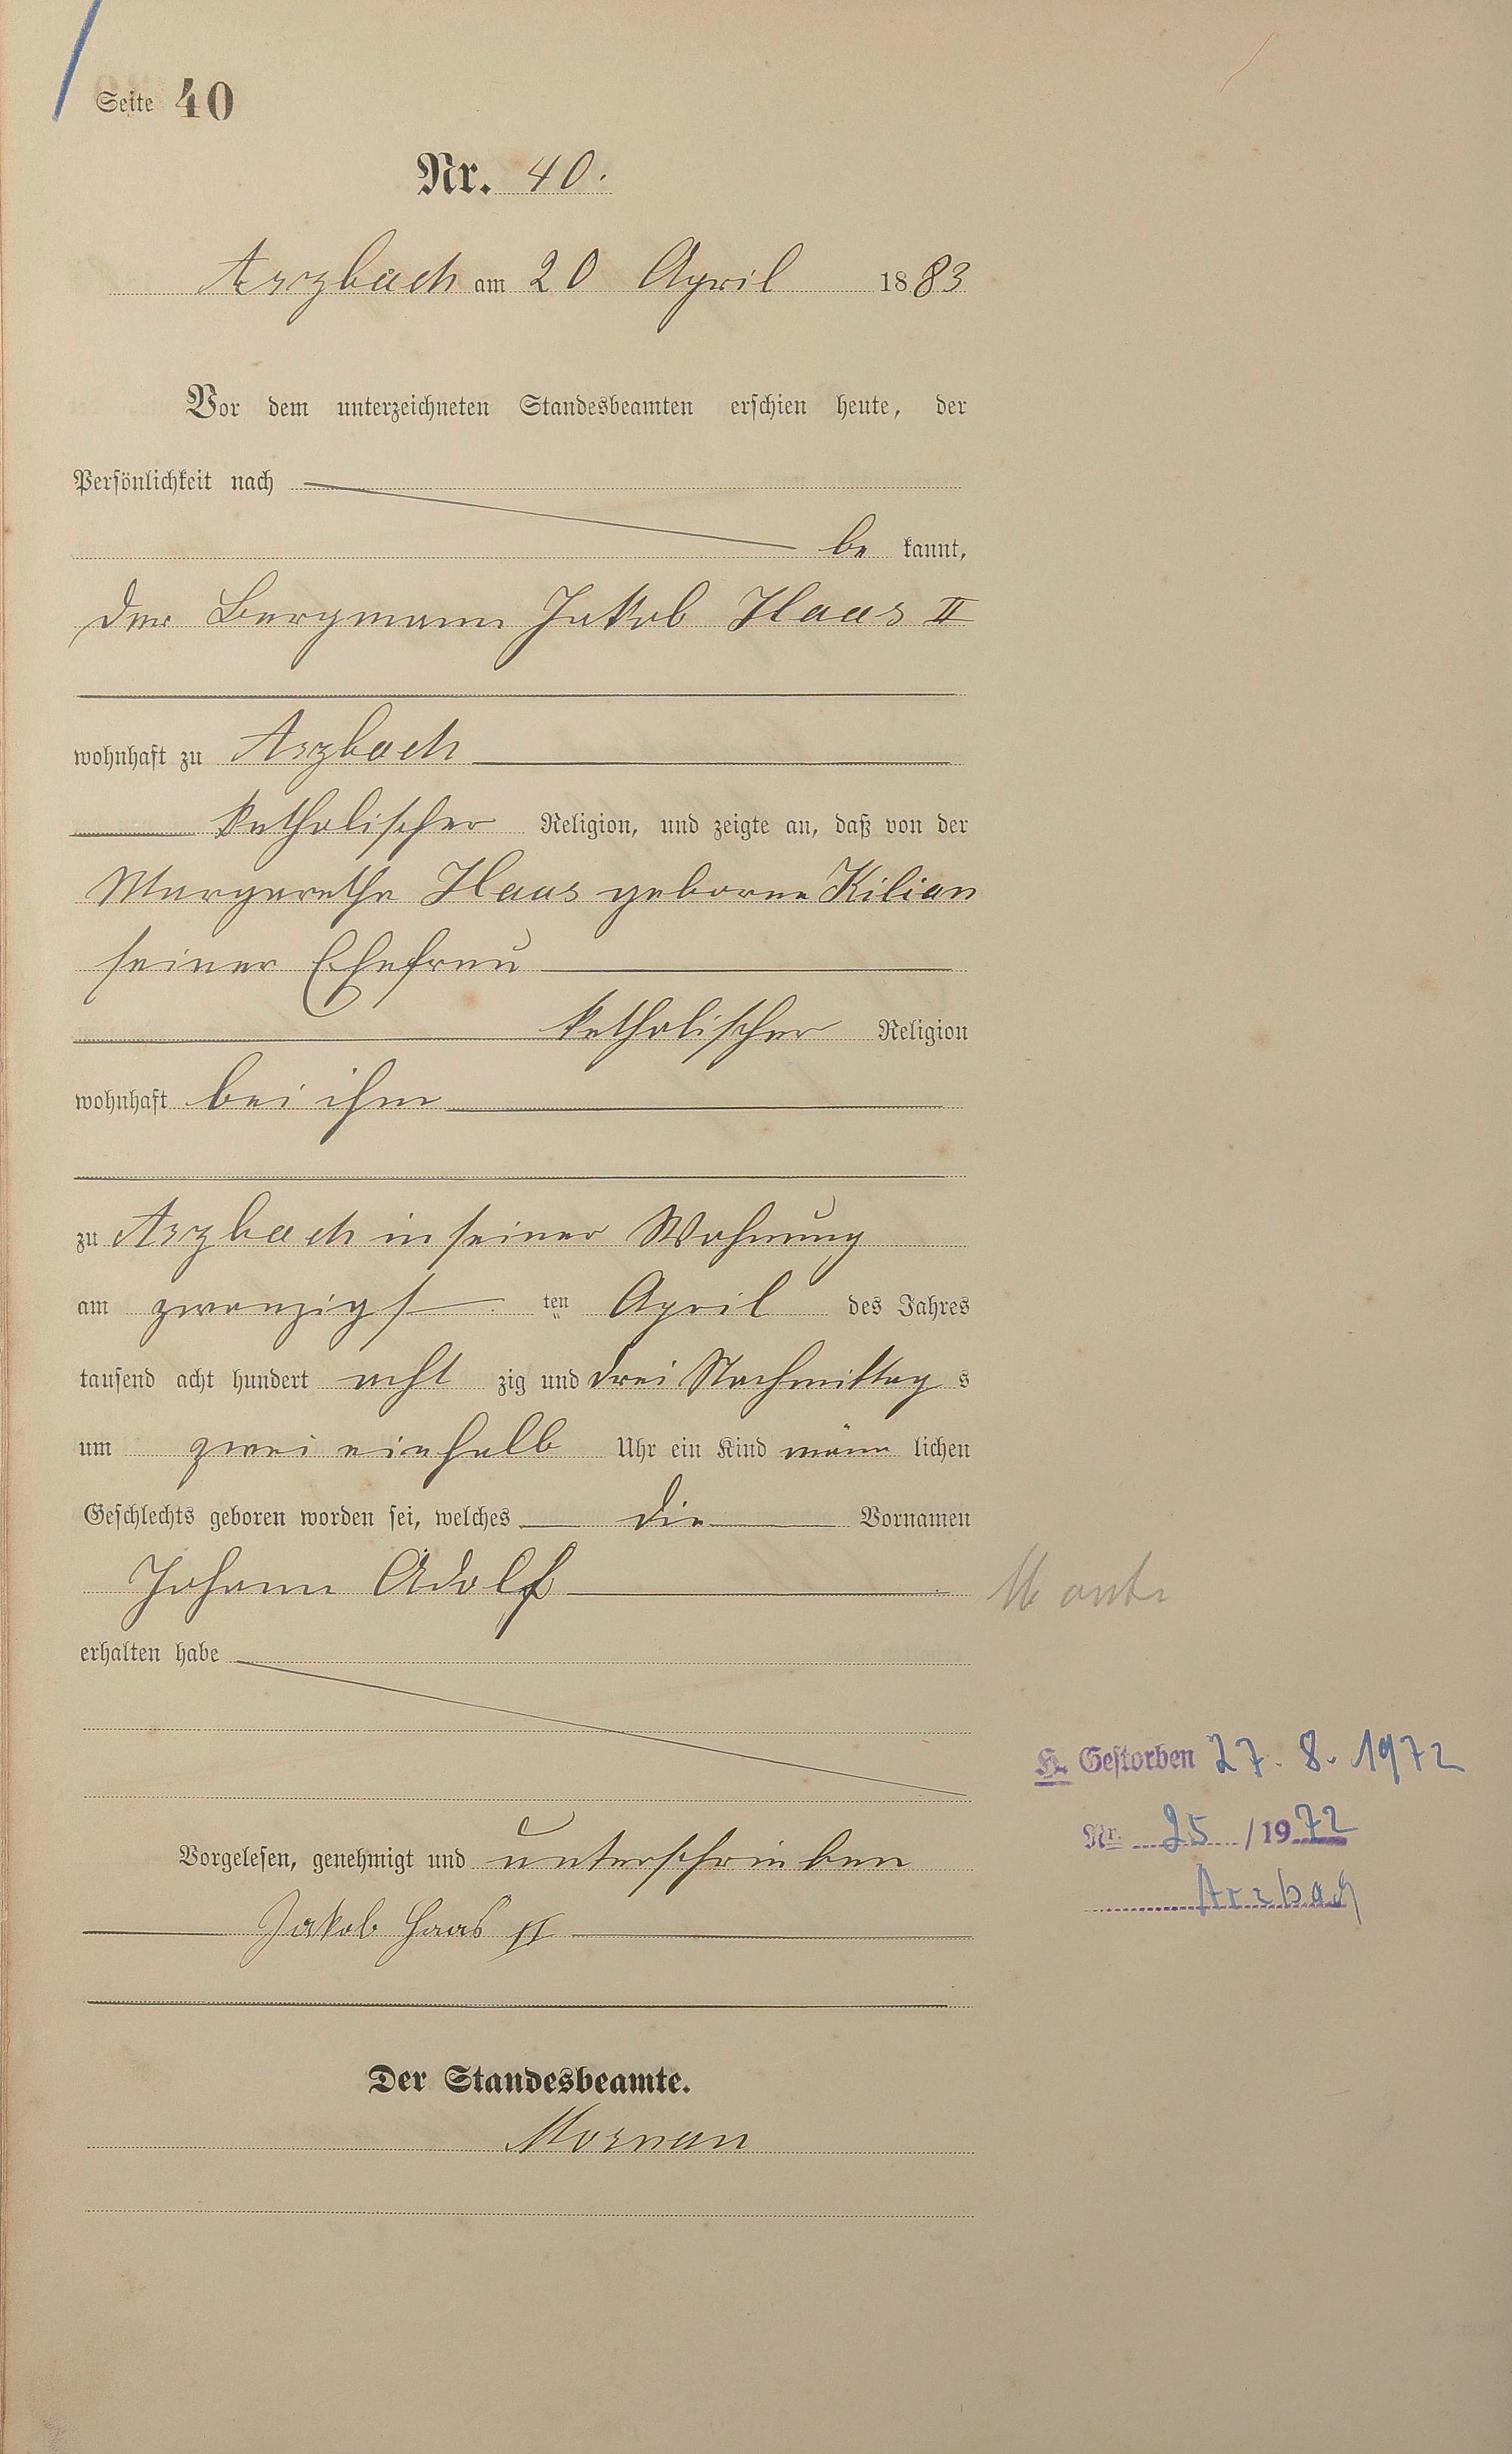 Seite 40
Nr. 40.
Arzbach am 20 April 1883
Vor dem unterzeichneten Standesbeamten erschien heute, der
Persönlichkeit nach
be kannt,
der Bergmann Jakob Haas II
wohnhaft zu Arzbach
katholischer Religion, und zeigte an, daß von der
Margarethe Haas geborne Kilian
seiner Ehefrau
katholischer Religion
wohnhaft bei ihm
zu Arzbach in seiner Wohnung
am zwanzigst ten April des Jahres
tausend acht hundert acht zig und drei Nachmittag s
um zwei einhalb Uhr ein Kind männ lichen
Geschlechts geboren worden sei, welches die Vornamen
Johann Adolf
erhalten habe
H. Gestorben 27. 8. 1972
Nr. 25 /1972
Arzbach
Vorgelesen, genehmigt und unterschrieben
Jakob Haas II
Der Standesbeamte.